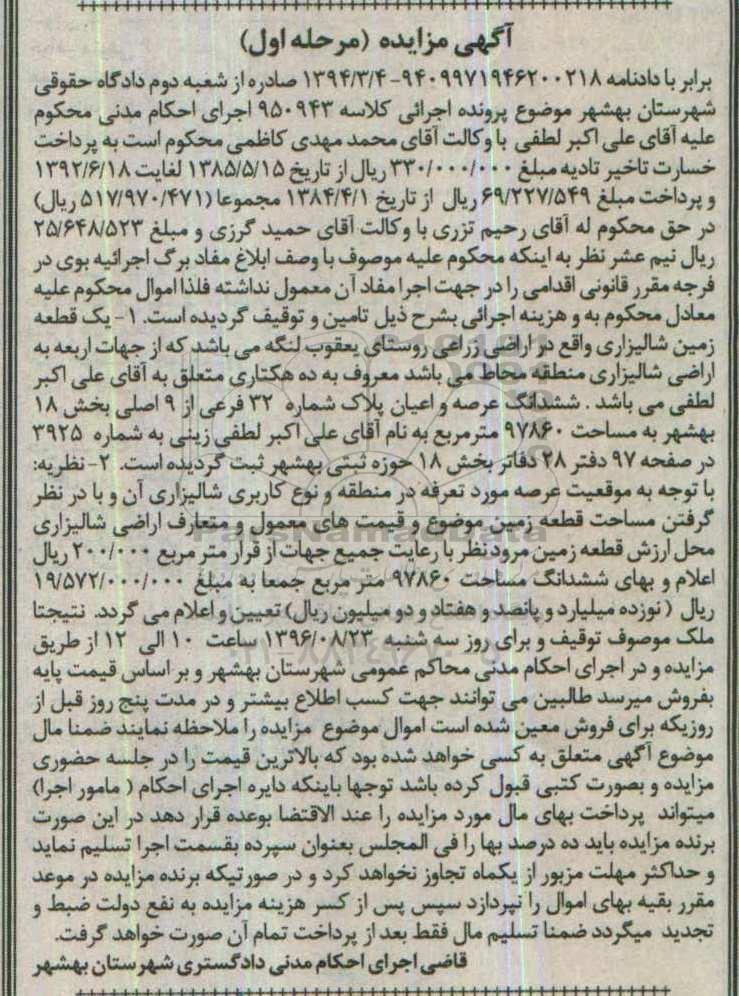 آگهی مزایده (مرحله اول)
برابر با دادنامه ۹۴۰۹۹۷۱۹۴۶۲۰۰۲۱۸-۱۳۹۴/۳/۴ صادره از شعبه دوم دادگاه حقوقی
شهرستان بهشهر موضوع پرونده اجرائی کلاسه ۹۵۰۹۴۳ اجرای احکام مدنی محکوم
علیه آقای علی اکبر لطفی با وکالت آقای محمد مهدی کاظمی محکوم است به پرداخت
خسارت تاخیر تادیه مبلغ ۳۳۰/۰۰۰/۰۰۰ ریال از تاریخ ۱۳۸۵/۵/۱۵ لغایت ۱۳۹۲/۶/۱۸
و پرداخت مبلغ ۶۹/۲۲۷/۵۴۹ ریال از تاریخ ۱۳۸۴/۴/۱ مجموعا (۵۱۷/۹۷۰/۴۷۱ ریال)
در حق محکوم له آقای رحیم تزری با وکالت آقای حمید گرزی و مبلغ ۲۵/۶۴۸/۵۲۳
ریال نیم عشر نظر به اینکه محکوم علیه موصوف با وصف ابلاغ مفاد برگ اجرائیه بوی در
فرجه مقرر قانونی اقدامی را در جهت اجرا مفاد آن معمول نداشته فلذا اموال محکوم علیه
معادل محکوم به و هزینه اجرائی بشرح ذیل تامین و توقیف گردیده است. ۱- یک قطعه
زمین شالیزاری واقع در اراضی زراعی روستای یعقوب لنگه می باشد که از جهات اربعه به
اراضی شالیزاری منطقه محاط می باشد معروف به ده هکتاری متعلق به آقای علی اکبر
لطفی می باشد . ششدانگ عرصه و اعیان پلاک شماره ۳۲ فرعی از ۹ اصلی بخش ۱۸
بهشهر به مساحت ۹۷۸۶۰ مترمربع به نام آقای علی اکبر لطفی زینی به شماره ۳۹۲۵
در صفحه ۹۷ دفتر ۲۸ دفاتر بخش ۱۸ حوزه ثبتی بهشهر ثبت گردیده است. ۲- نظریه:
با توجه به موقعیت عرصه مورد تعرفه در منطقه و نوع کاربری شالیزاری آن و با در نظر
گرفتن مساحت قطعه زمین موضوع و قیمت های معمول و متعارف اراضی شالیزاری
محل ارزش قطعه زمین مرود نظر با رعایت جمیع جهات از قرار متر مربع ۲۰۰/۰۰۰ ریال
اعلام و بهای ششدانگ مساحت ۹۷۸۶۰ متر مربع جمعا به مبلغ ۱۹/۵۷۲/۰۰۰/۰۰۰
ریال (نوزده میلیارد و پانصد و هفتاد و دو میلیون ریال) تعیین و اعلام می گردد. نتیجتا
ملک موصوف توقیف و برای روز سه شنبه ۱۳۹۶/۰۸/۲۳ ساعت ۱۰ الی ۱۲ از طریق
مزایده و در اجرای احکام مدنی محاکم عمومی شهرستان بهشهر و بر اساس قیمت پایه
بفروش میرسد طالبین می توانند جهت کسب اطلاع بیشتر و در مدت پنج روز قبل از
روزیکه برای فروش معین شده است اموال موضوع مزایده را ملاحظه نمایند ضمنا مال
موضوع آگهی متعلق به کسی خواهد شده بود که بالاترین قیمت را در جلسه حضوری
مزایده و بصورت کتبی قبول کرده باشد توجها باینکه دایره اجرای احکام ( مامور اجرا)
میتواند پرداخت بهای مال مورد مزایده را عند الاقتضا بوعده قرار دهد در این صورت
برنده مزایده باید ده درصد بها را فی المجلس بعنوان سپرده بقسمت اجرا تسلیم نماید
و حداکثر مهلت مزبور از یکماه تجاوز نخواهد کرد و در صورتیکه برنده مزایده در موعد
مقرر بقیه بهای اموال را نپردازد سپس پس از کسر هزینه مزایده به نفع دولت ضبط و
تجدید میگردد ضمنا تسلیم مال فقط بعد از پرداخت تمام آن صورت خواهد گرفت.
قاضی اجرای احکام مدنی دادگستری شهرستان بهشهر
ParsNamadData